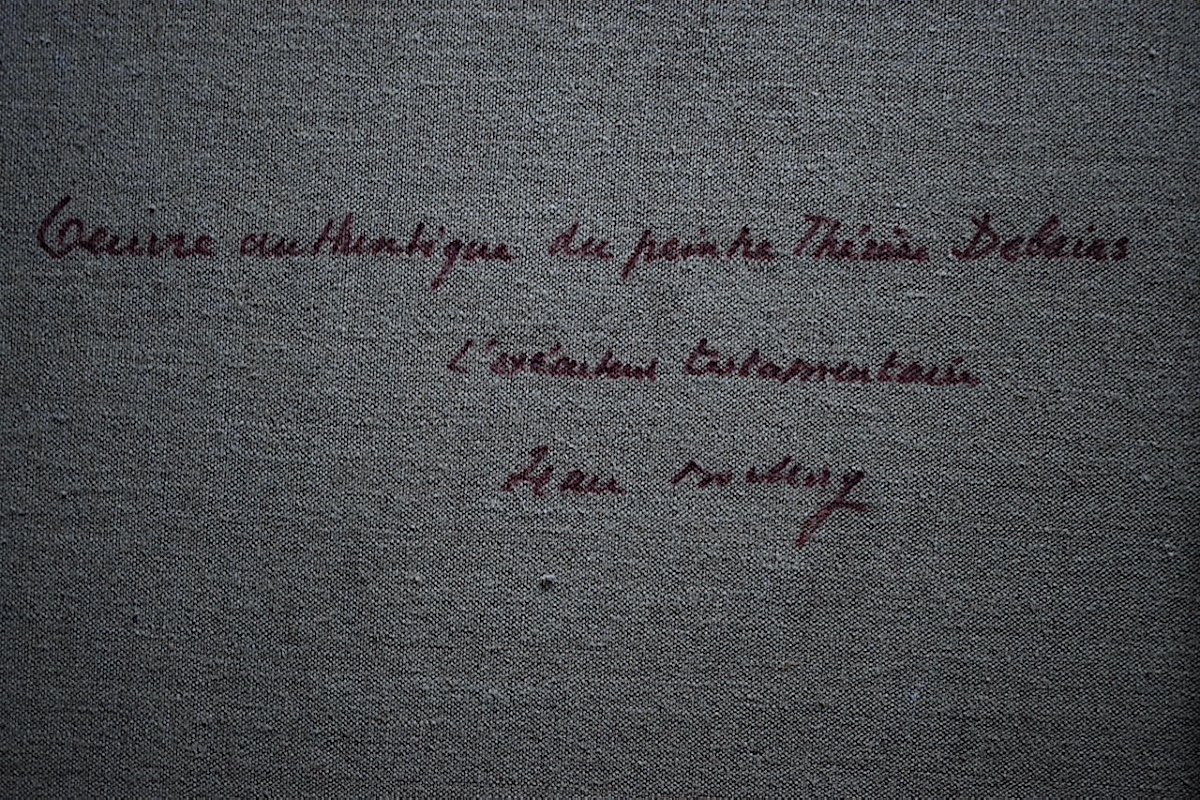 Œuvre authentique du peintre Thérèse Debains
L'exécuteur testamentaire
Jean